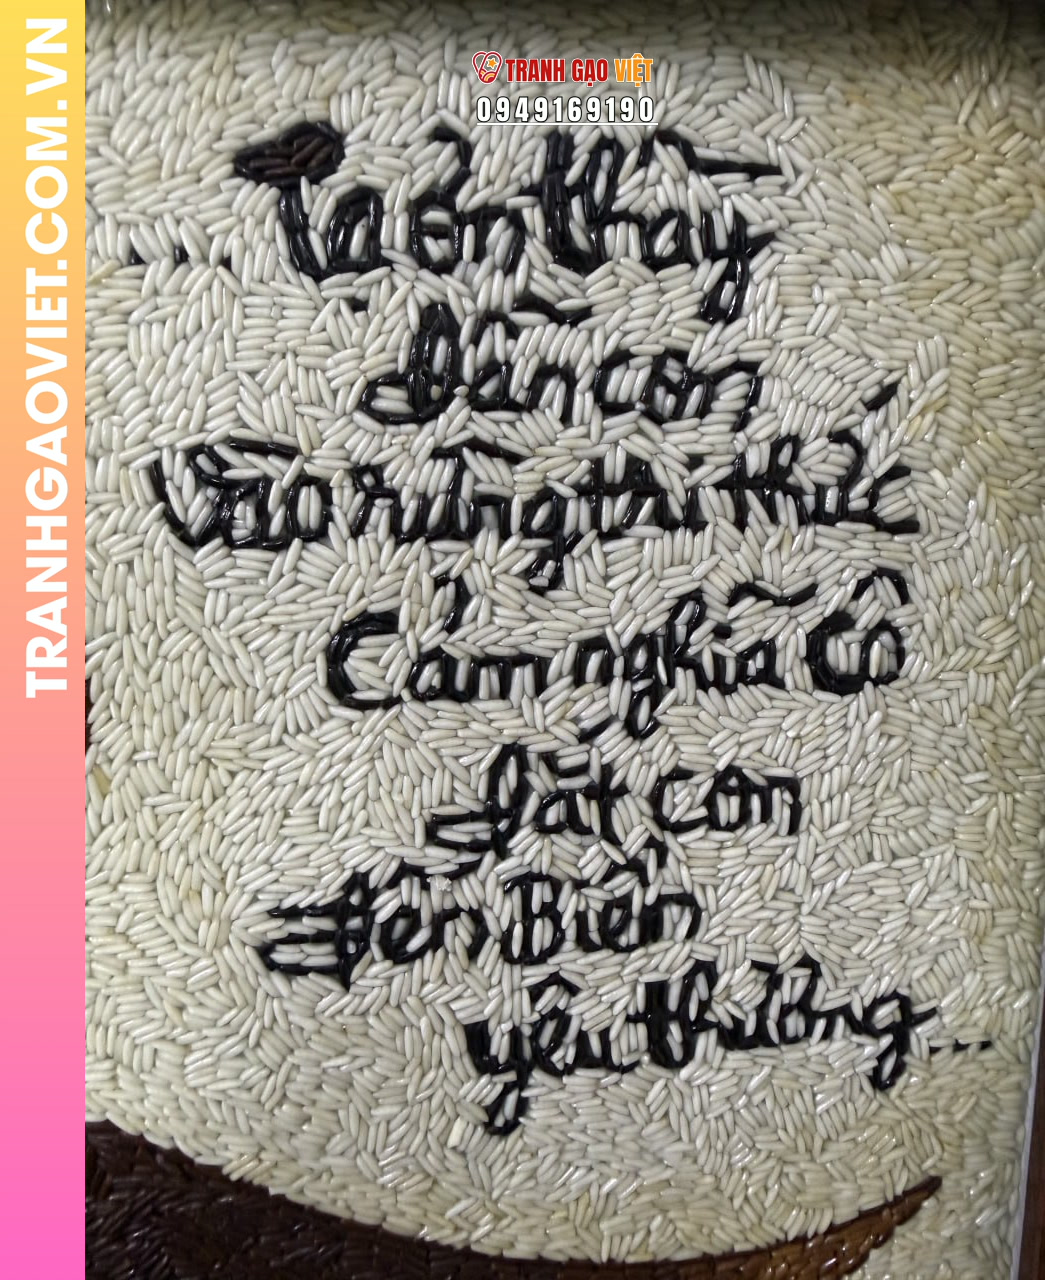 TRANHGAOVIET.COM.VN
TRANH GẠO VIỆT
0949169190
... Tạ ơn thầy
đã dẫn con
Vào rừng tri thức
Cảm nghĩa Cô
dắt con
đến Biển
yêu thương...